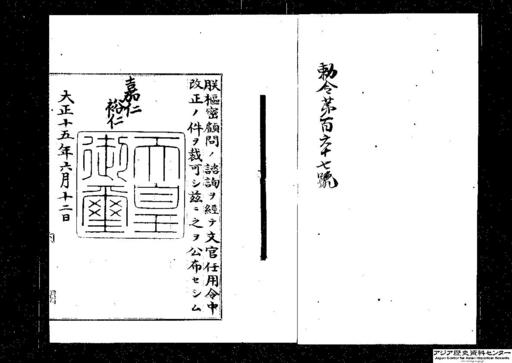 勅令第百六十七號
朕樞密顧問ノ諮詢ヲ經テ文官任用令中
改正ノ件ヲ裁可シ茲ニ之ヲ公布セシム
嘉仁
裕仁
天皇
御璽
大正十五年六月十二日
アジア歴史資料センター
Japan Center for Asian Historical Records